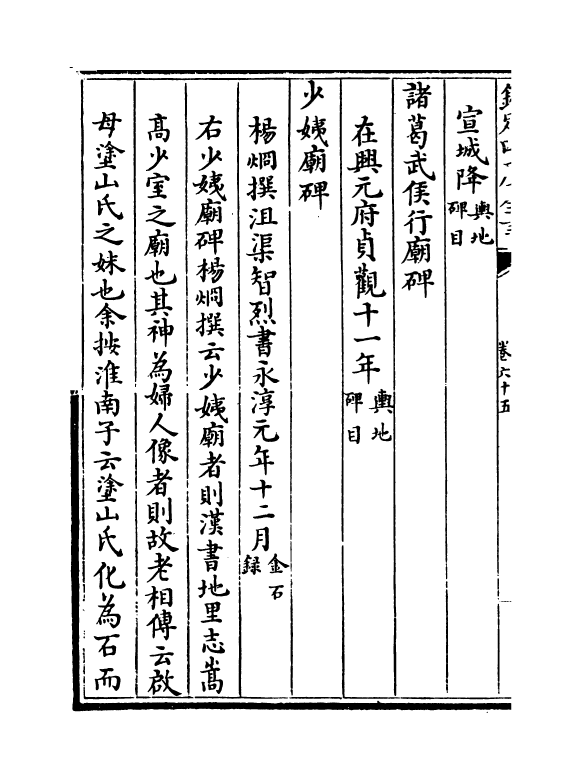 卷六十五
宣城降輿地碑目
諸葛武侯行廟碑
在興元府貞觀十一年輿地碑目
少姨廟碑
楊烱撰沮渠智烈書永淳元年十二月金石錄
右少姨廟碑楊烱撰云少姨廟者則漢書地里志嵩
高少室之廟也其神為婦人像者則故老相傳云啟
母塗山氏之妹也余按淮南子云塗山氏化為石而